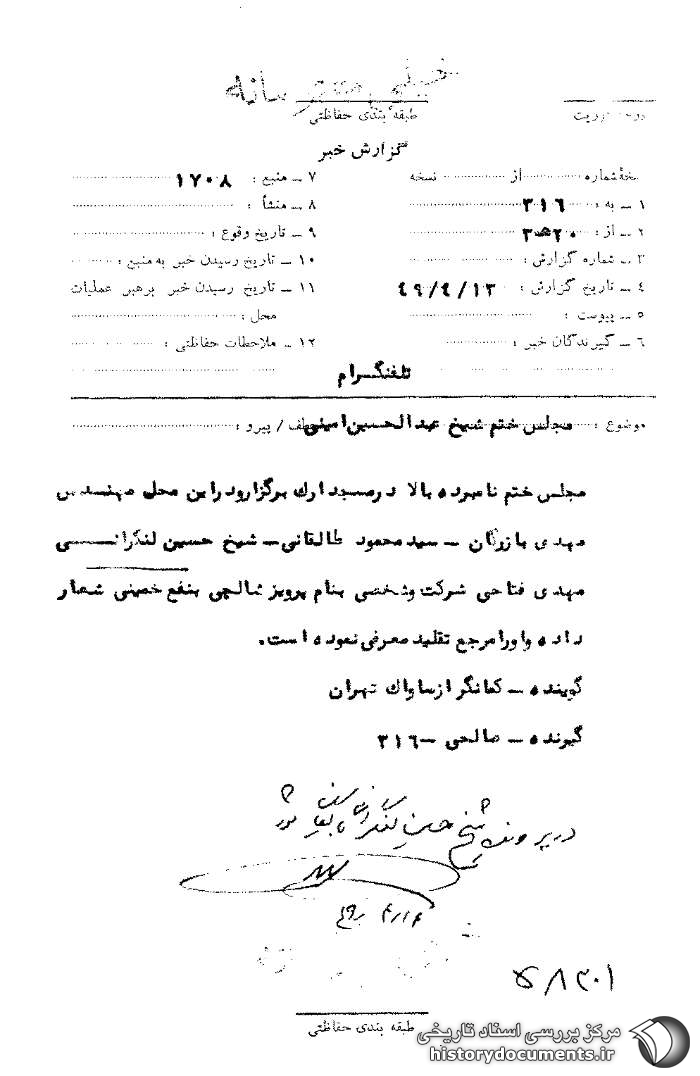 طبقه بندی حفاظتی
گزارش خبر
نسخهٔ شماره از نسخه
۱ ــ به : ۳۱۶
۲ ــ از : ۲۰ه۳
۳ ــ شماره گزارش :
۴ ــ تاریخ گزارش : ۴۹/۴/۱۳
۵ ــ پیوست :
۶ ــ گیرندگان خبر :
۷ ــ منبع : ۱۷۰۸
۸ ــ منشأ :
۹ ــ تاریخ وقوع :
۱۰ ــ تاریخ رسیدن خبر به منبع :
۱۱ ــ تاریخ رسیدن خبر برهبر عملیات
محل :
۱۲ ــ ملاحظات حفاظتی :
تلفنگرام
موضوع : مجلس ختم شیخ عبدالحسین امینی عطف / پیرو :
مجلس ختم نامبرده بالا در مسجد ارك برگزار ودراین محل مهندس
مهدی بازرگان ــ سید محمود طالقانی ــ شیخ حسین لنگرانی
مهدی فتاحی شرکت وشخصی بنام پرویز شالچی بنفع خمینی شعار
داده واورا مرجع تقلید معرفی نموده است.
گوینده ــ کمانگر ازساواك تهران
گیرنده ــ صالحی ــ ۳۱۶
در پرونده شیخ حسین لنگرانی
۵۸۳۰۱
طبقه بندی حفاظتی
مرکز بررسی اسناد تاریخی
historydocuments.ir